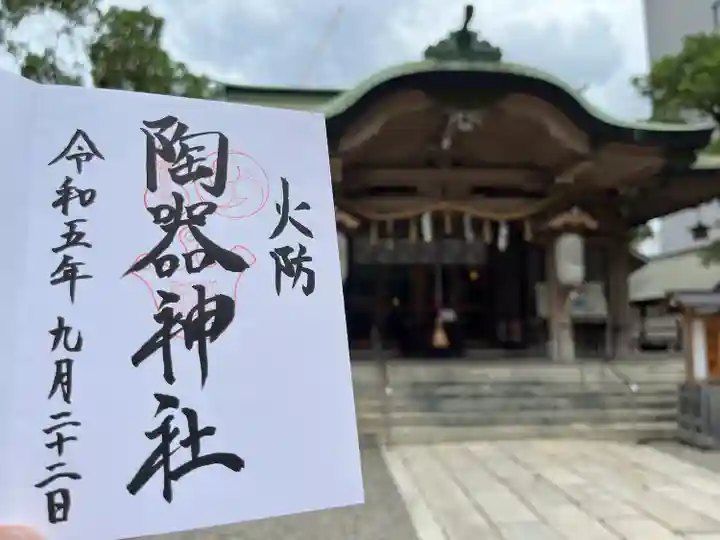 火防
陶器神社
令和五年九月二十二日